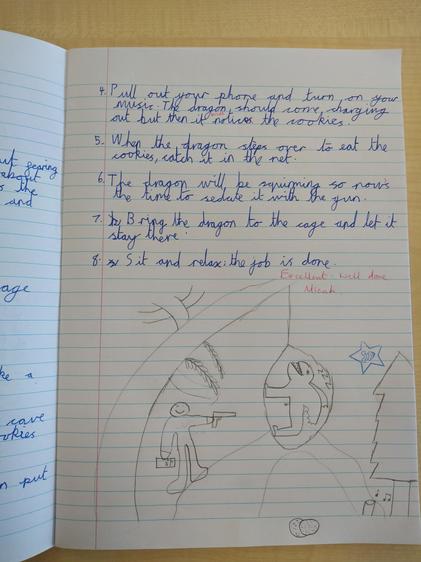 4. Pull out your phone and turn on your
music. The dragon should come charging
out but then it notices the cookies.
5. When the dragon steps over to eat the
cookies, catch it in the net.
6. The dragon will be squirming so now's
the time to sedate it with the gun.
7. Bring the dragon to the cage and let it
stay there.
8. Sit and relax: the job is done.
Excellent. Well done
Micah.
about
the
and
age
ke a
cave
ookies
n put